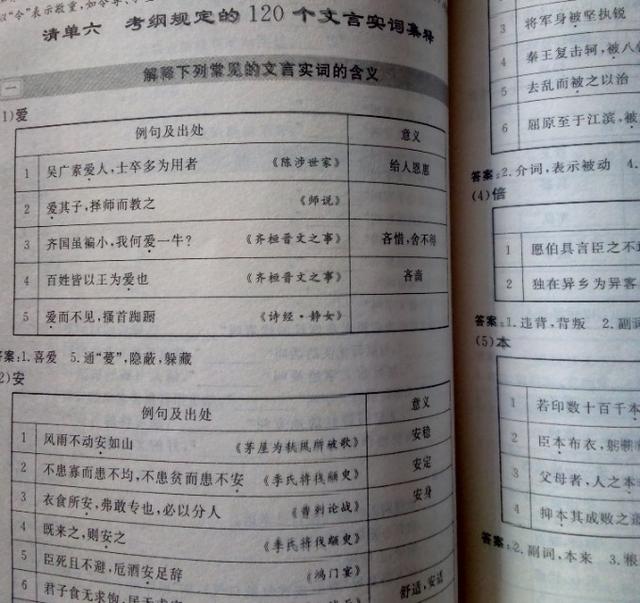 以“令”表示敬重,如令尊、
清单六 考纲规定的120个文言实词集释
一 解释下列常见的文言实词的含义
1)爱
例句及出处 意义
1 吴广素爱人,士卒多为用者 《陈涉世家》 给人恩惠
2 爱其子,择师而教之 《师说》
3 齐国虽褊小,我何爱一牛? 《齐桓晋文之事》 吝惜,舍不得
4 百姓皆以王为爱也 《齐桓晋文之事》 吝啬
5 爱而不见,搔首踟蹰 《诗经·静女》
答案:1.喜爱 5.通“薆”,隐蔽,躲藏
2)安
例句及出处 意义
1 风雨不动安如山 《茅屋为秋风所破歌》 安稳
2 不患寡而患不均,不患贫而患不安 《季氏将伐颛臾》 安定
3 衣食所安,弗敢专也,必以分人 《曹刿论战》 安身
4 既来之,则安之 《季氏将伐颛臾》
5 臣死且不避,卮酒安足辞 《鸿门宴》
6 君子食无求饱,居无求安 舒适,安适
3 将军身被坚执锐
4 秦王复击轲,被八
5 去乱而被之以治
6 屈原至于江滨,被
答案:2.介词,表示被动 4.
(4)倍
1 愿伯具言臣之不
2 独在异乡为异客
答案:1.违背,背叛 2.副词
(5)本
1 若印数十百千本
2 臣本布衣,躬耕
3 父母者,人之本
4 抑本其成败之迹
答案:2.副词,本来 3.根